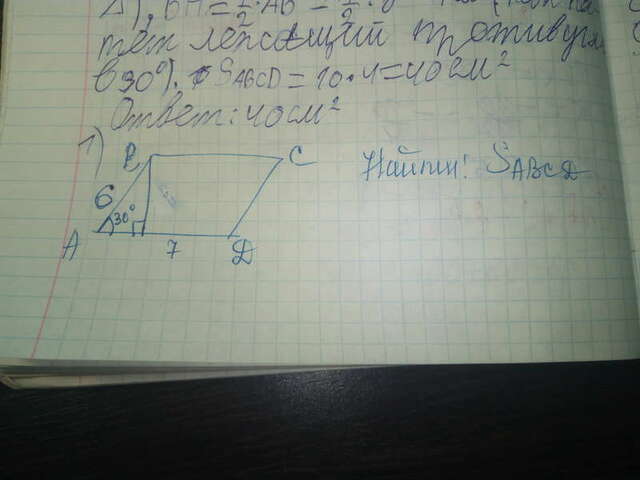 Δ), BH = 1/2 · AB = 1/2 ·
тет лежащий против угла
в 30°). S ABCD = 10 · 4 = 40 см²
Ответ: 40 см²
1)
B
C
Найти: S ABCD
6
30°
A
7
D